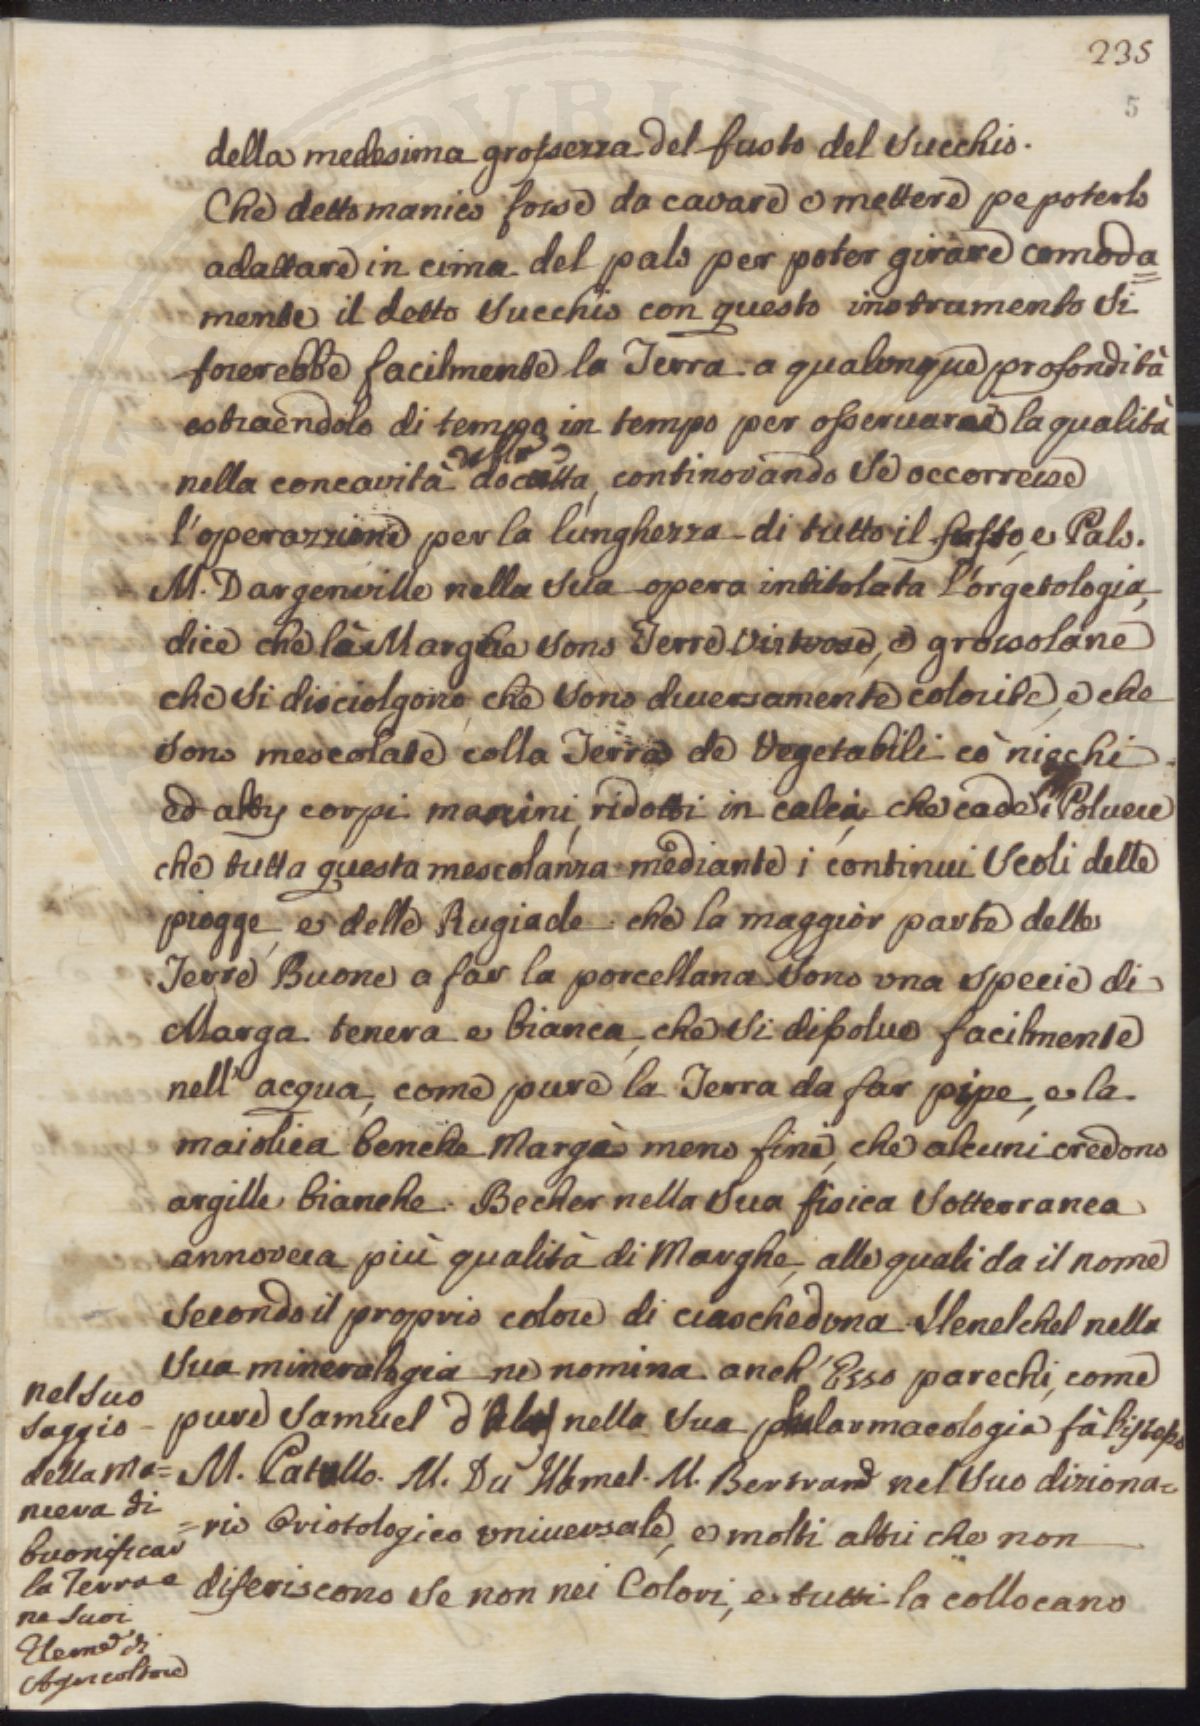 235
5
della medesima grossezza del fusto del Succhio.
Che detto manico fosse da cavare e mettere pe poterlo
adattare in cima del palo per poter girare comoda=
mente il detto Succhio con questo instrumento Si
forerebbe facilmente la Terra a qualunque profondità
estraendolo di tempo in tempo per osservare la qualità
nella concavità della, continovando Se occorresse
l'operazzione per la lunghezza di tutto il fusto, e Palo.
M. Dargenville nella Sua opera intitolata l'orgetologia,
dice che la Marghe sono Terre Virtuose, e grossolane
che Si disciolgono, che sono diversamente colorite, e che
sono mescolate colla Terra de Vegetabili cò nicchi
ed altri corpi marini, ridotti in calcia, che cade i Polvere
che tutta questa mescolanza mediante i continui Scoli delle
piogge, e delle Rugiade che la maggior parte delle
Terre Buone a far la porcellana sono una Specie di
Marga tenera e bianca, che Si dissolve facilmente
nell' acqua, come pure la Terra da far pipe, e la
maiolica benche Marga meno fine, che alcuni credono
argille bianche. Becher nella Sua fisica Sotterranea
annovera più qualità di Marghe, alle quali da il nome
Secondo il proprio colore di ciascheduna Henelchel nella
Sua mineralogia ne nomina anch' Esso parechi, come
pure Samuel d' nella Sua fà l'istesso
M. Patullo. M. Du Hamel. M. Bertrand nel Suo diziona=
=rio Oristologico universale, e molti altri che non
diferiscono Se non nei Colori, e tutti la collocano
nel Suo
Saggio
della Ma=
niera di
buonificar
la Terra e
ne Suoi
Elemti di
Agricoltura